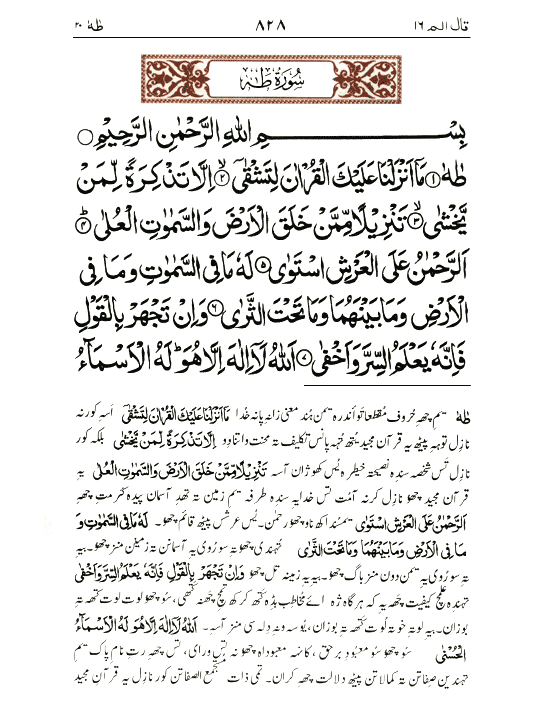 قال الم ۱۶ ۸۲۸ طٰهٰ ۲۰
سُوْرَة طٰهٰ
بِسْمِ اللهِ الرَّحْمٰنِ الرَّحِيْمِ
طٰهٰ ۝۱ مَآ اَنْزَلْنَا عَلَيْكَ الْقُرْاٰنَ لِتَشْقٰىٓ ۙ۝۲ اِلَّا تَذْكِرَةً لِّمَنْ
يَّخْشٰى ۙ۝۳ تَنْزِيْلًا مِّمَّنْ خَلَقَ الْاَرْضَ وَالسَّمٰوٰتِ الْعُلٰى ؕ۝۴
اَلرَّحْمٰنُ عَلَى الْعَرْشِ اسْتَوٰى ۝۵ لَهٗ مَا فِى السَّمٰوٰتِ وَمَا فِى
الْاَرْضِ وَمَا بَيْنَهُمَا وَمَا تَحْتَ الثَّرٰى ۝۶ وَاِنْ تَجْهَرْ بِالْقَوْلِ
فَاِنَّهٗ يَعْلَمُ السِّرَّ وَاَخْفٰى ۝۷ اَللهُ لَاۤ اِلٰهَ اِلَّا هُوَ ؕ لَهُ الْاَسْمَآءُ
طٰهٰ یم چھِ حُروف مُقطعات اندرہ یمن ہُند معنی زانہِ پانہ خُدا مَآ اَنْزَلْنَا عَلَيْكَ الْقُرْاٰنَ لِتَشْقٰىٓ اَسہِ کور نہ
نازل توہہِ پیٹھ یہ قرآن مجید تُہہِ پانس تکلیف تہ محنت واتناوو اِلَّا تَذْكِرَةً لِّمَنْ يَّخْشٰى بلکہ کور
نازل تس شخصہ سندِ نصیحتہ خٲطرہ یس کھوژان آسہِ تَنْزِيْلًا مِّمَّنْ خَلَقَ الْاَرْضَ وَالسَّمٰوٰتِ الْعُلٰى یہ
قرآن مجید چھو نازل کرنہ آمُت تس خدایہ سندِ طرفہ یم زمین تہ تھدِ آسمان پیدہ کٔرمت چھِ
اَلرَّحْمٰنُ عَلَى الْعَرْشِ اسْتَوٰى یمُند اکھ ناو چھو رحمٰن۔ یس عرشس پیٹھ قائم چھو۔ لَهٗ مَا فِى السَّمٰوٰتِ وَ
مَا فِى الْاَرْضِ وَمَا بَيْنَهُمَا وَمَا تَحْتَ الثَّرٰى تہُندی چھو تہ سورُوی یہ آسمانن تہ زمینن منز چھو۔ بیہ
تہ سوروی یہ یمن دون منز باگ چھو۔ بیہ یہ زمینہ تل چھو وَاِنْ تَجْهَرْ بِالْقَوْلِ فَاِنَّهٗ يَعْلَمُ السِّرَّ وَاَخْفٰى
تہندِ علمچ کیفیت چھہ یہ کہ ہرگاہ ژہ اے مُخاطب بڈِ کتھ کرکھ چھنہ کٔتھی، سُہ چھو لوت لوت کتھ تہ
بوزان۔ بیہ لوتہ خوتہ لوت کتھ تہ بوزان، یُوسہ ونہ دِلسی منز آسہِ۔ اَللهُ لَاۤ اِلٰهَ اِلَّا هُوَ لَهُ الْاَسْمَآءُ
الْحُسْنٰى سُہ چھو سُہ معبودِ برحق، کانہہ معبوداہ چھو نہ تس ورای، تس چھہِ رتِ نام پاک یم
تہندین صفاتن تہ کمالاتن پیٹھ دلالت چھہِ کران۔ تمی ذات جمع الصفاتن کور نازل یہ قرآن مجید